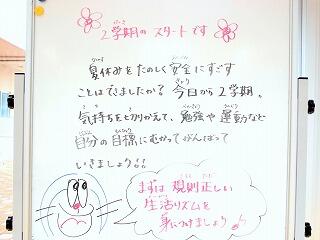 2学期のスタートです
夏休みをたのしく安全にすごす
ことはできましたか？今日から2学期。
気持ちを切りかえて、勉強や運動など
自分の目標にむかってがんばって
いきましょう!!
まずは規則正しい
生活リズムを
身につけましょう♪